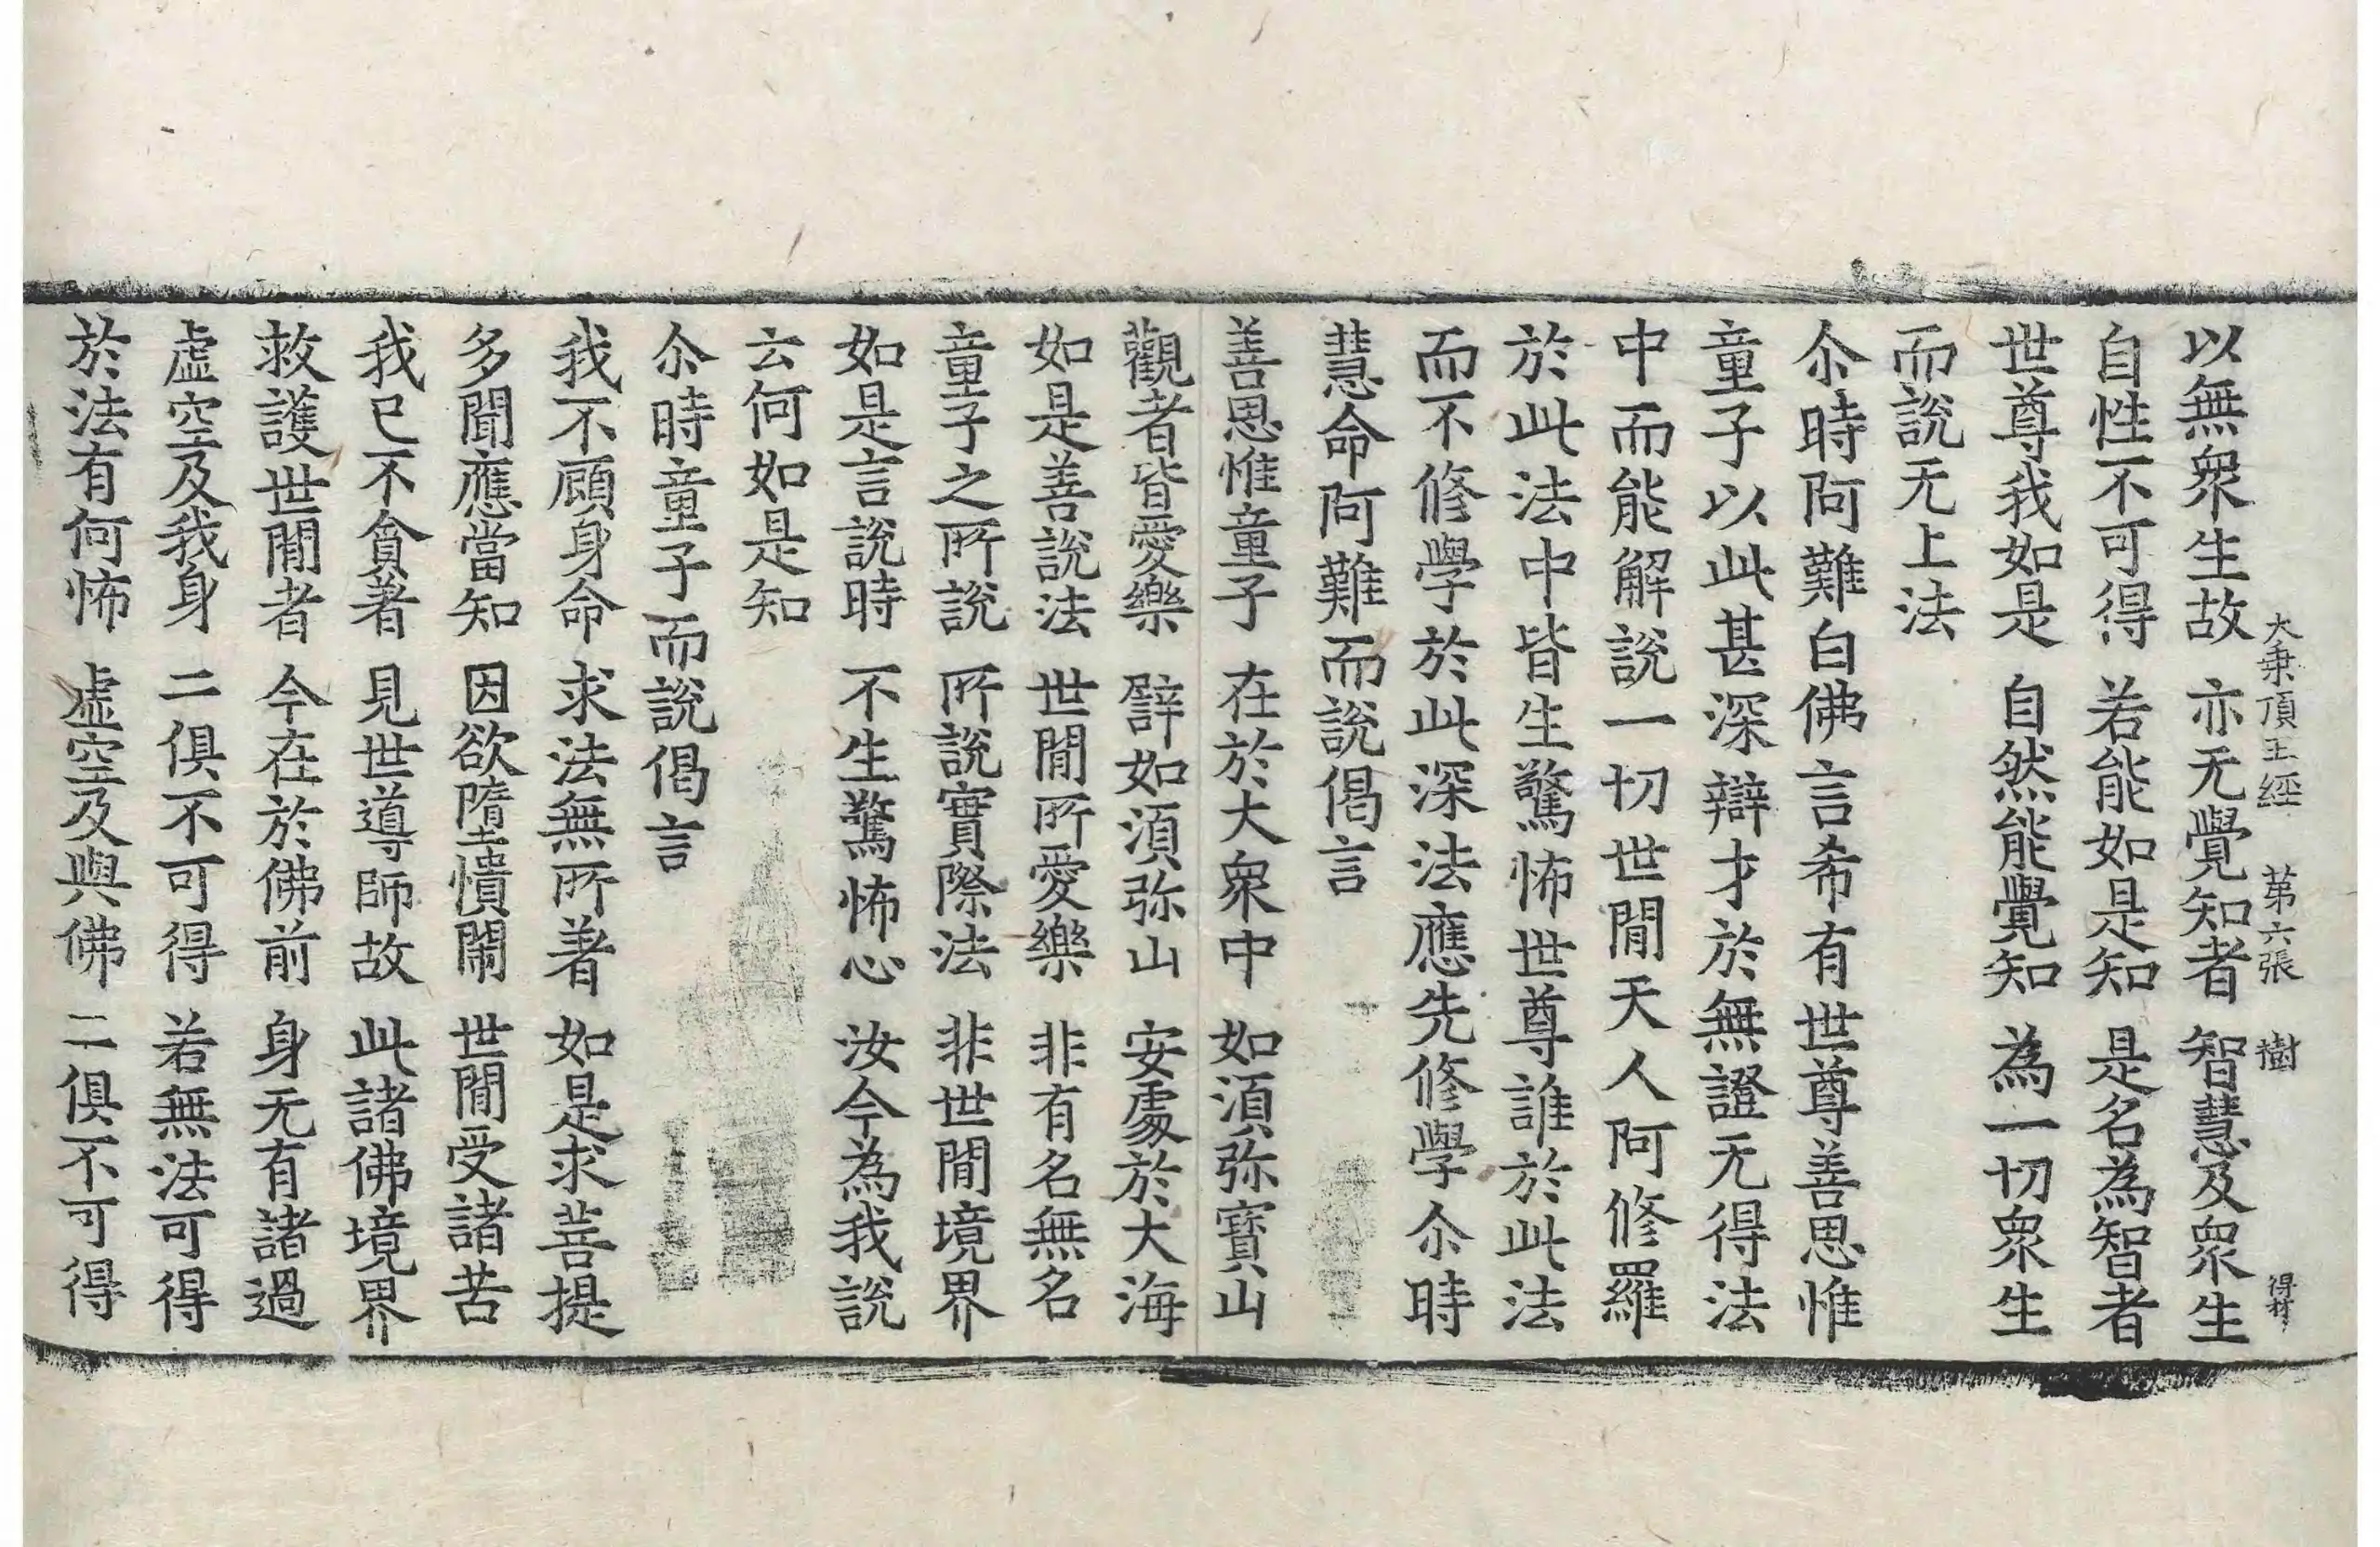 大乗頂王經 第六張 樹 得材
以無衆生故 亦无覺知者 智慧及衆生
自性不可得 若能如是知 是名為智者
世尊我如是 自然能覺知 為一切衆生
而說无上法
尒時阿難白佛言希有世尊善思惟
童子以此甚深辯才於無證无得法
中而能解說一切世閒天人阿修羅
於此法中皆生驚怖世尊誰於此法
而不修學於此深法應先修學尒時
慧命阿難而說偈言
善思惟童子 在於大衆中 如湏弥寶山
觀者皆愛樂 譬如湏弥山 安處於大海
如是善說法 世閒所愛樂 非有名無名
童子之所說 所說實際法 非世閒境界
如是言說時 不生驚怖心 汝今為我說
云何如是知
尒時童子而說偈言
我不顧身命 求法無所著 如是求菩提
多聞應當知 因欲墮憒閙 世閒受諸苦
我已不貪著 見世導師故 此諸佛境界
救護世閒者 今在於佛前 身无有諸過
虛空及我身 二俱不可得 若無法可得
於法有何怖 虛空及與佛 二俱不可得